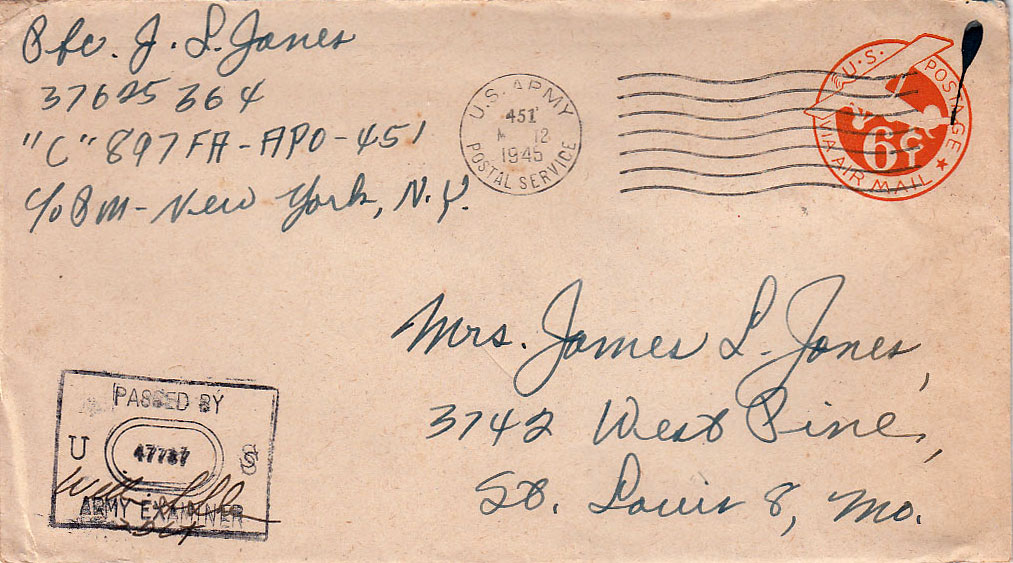 Pfc. J. L. Jones
37625364
"C" 897 FA - APO - 451
c/o P M - New York, N.Y.
U.S. ARMY
451
12
1945
POSTAL SERVICE
U.S. POSTAGE
6¢
VIA AIR MAIL
Mrs. James L. Jones,
3742 West Pine,
St. Louis 8, Mo.
PASSED BY
U S
47787
ARMY EXAMINER